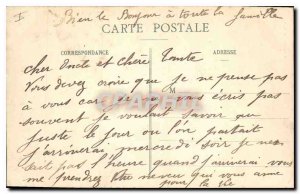 I
Bien le Bonjour à toute la famille
CARTE POSTALE
CORRESPONDANCE
ADRESSE
cher Oncle et Chère Tante
Vous devez croire que je ne pense pas
à vous car je vous écris pas
souvent je voulait savoir au
juste le jour ou l'on partait
j'arriverai mercredi soir je ne
sait pas l'heure quand j'arriverai vous
me prendrez votre neveu qui vous aime
pour la vie